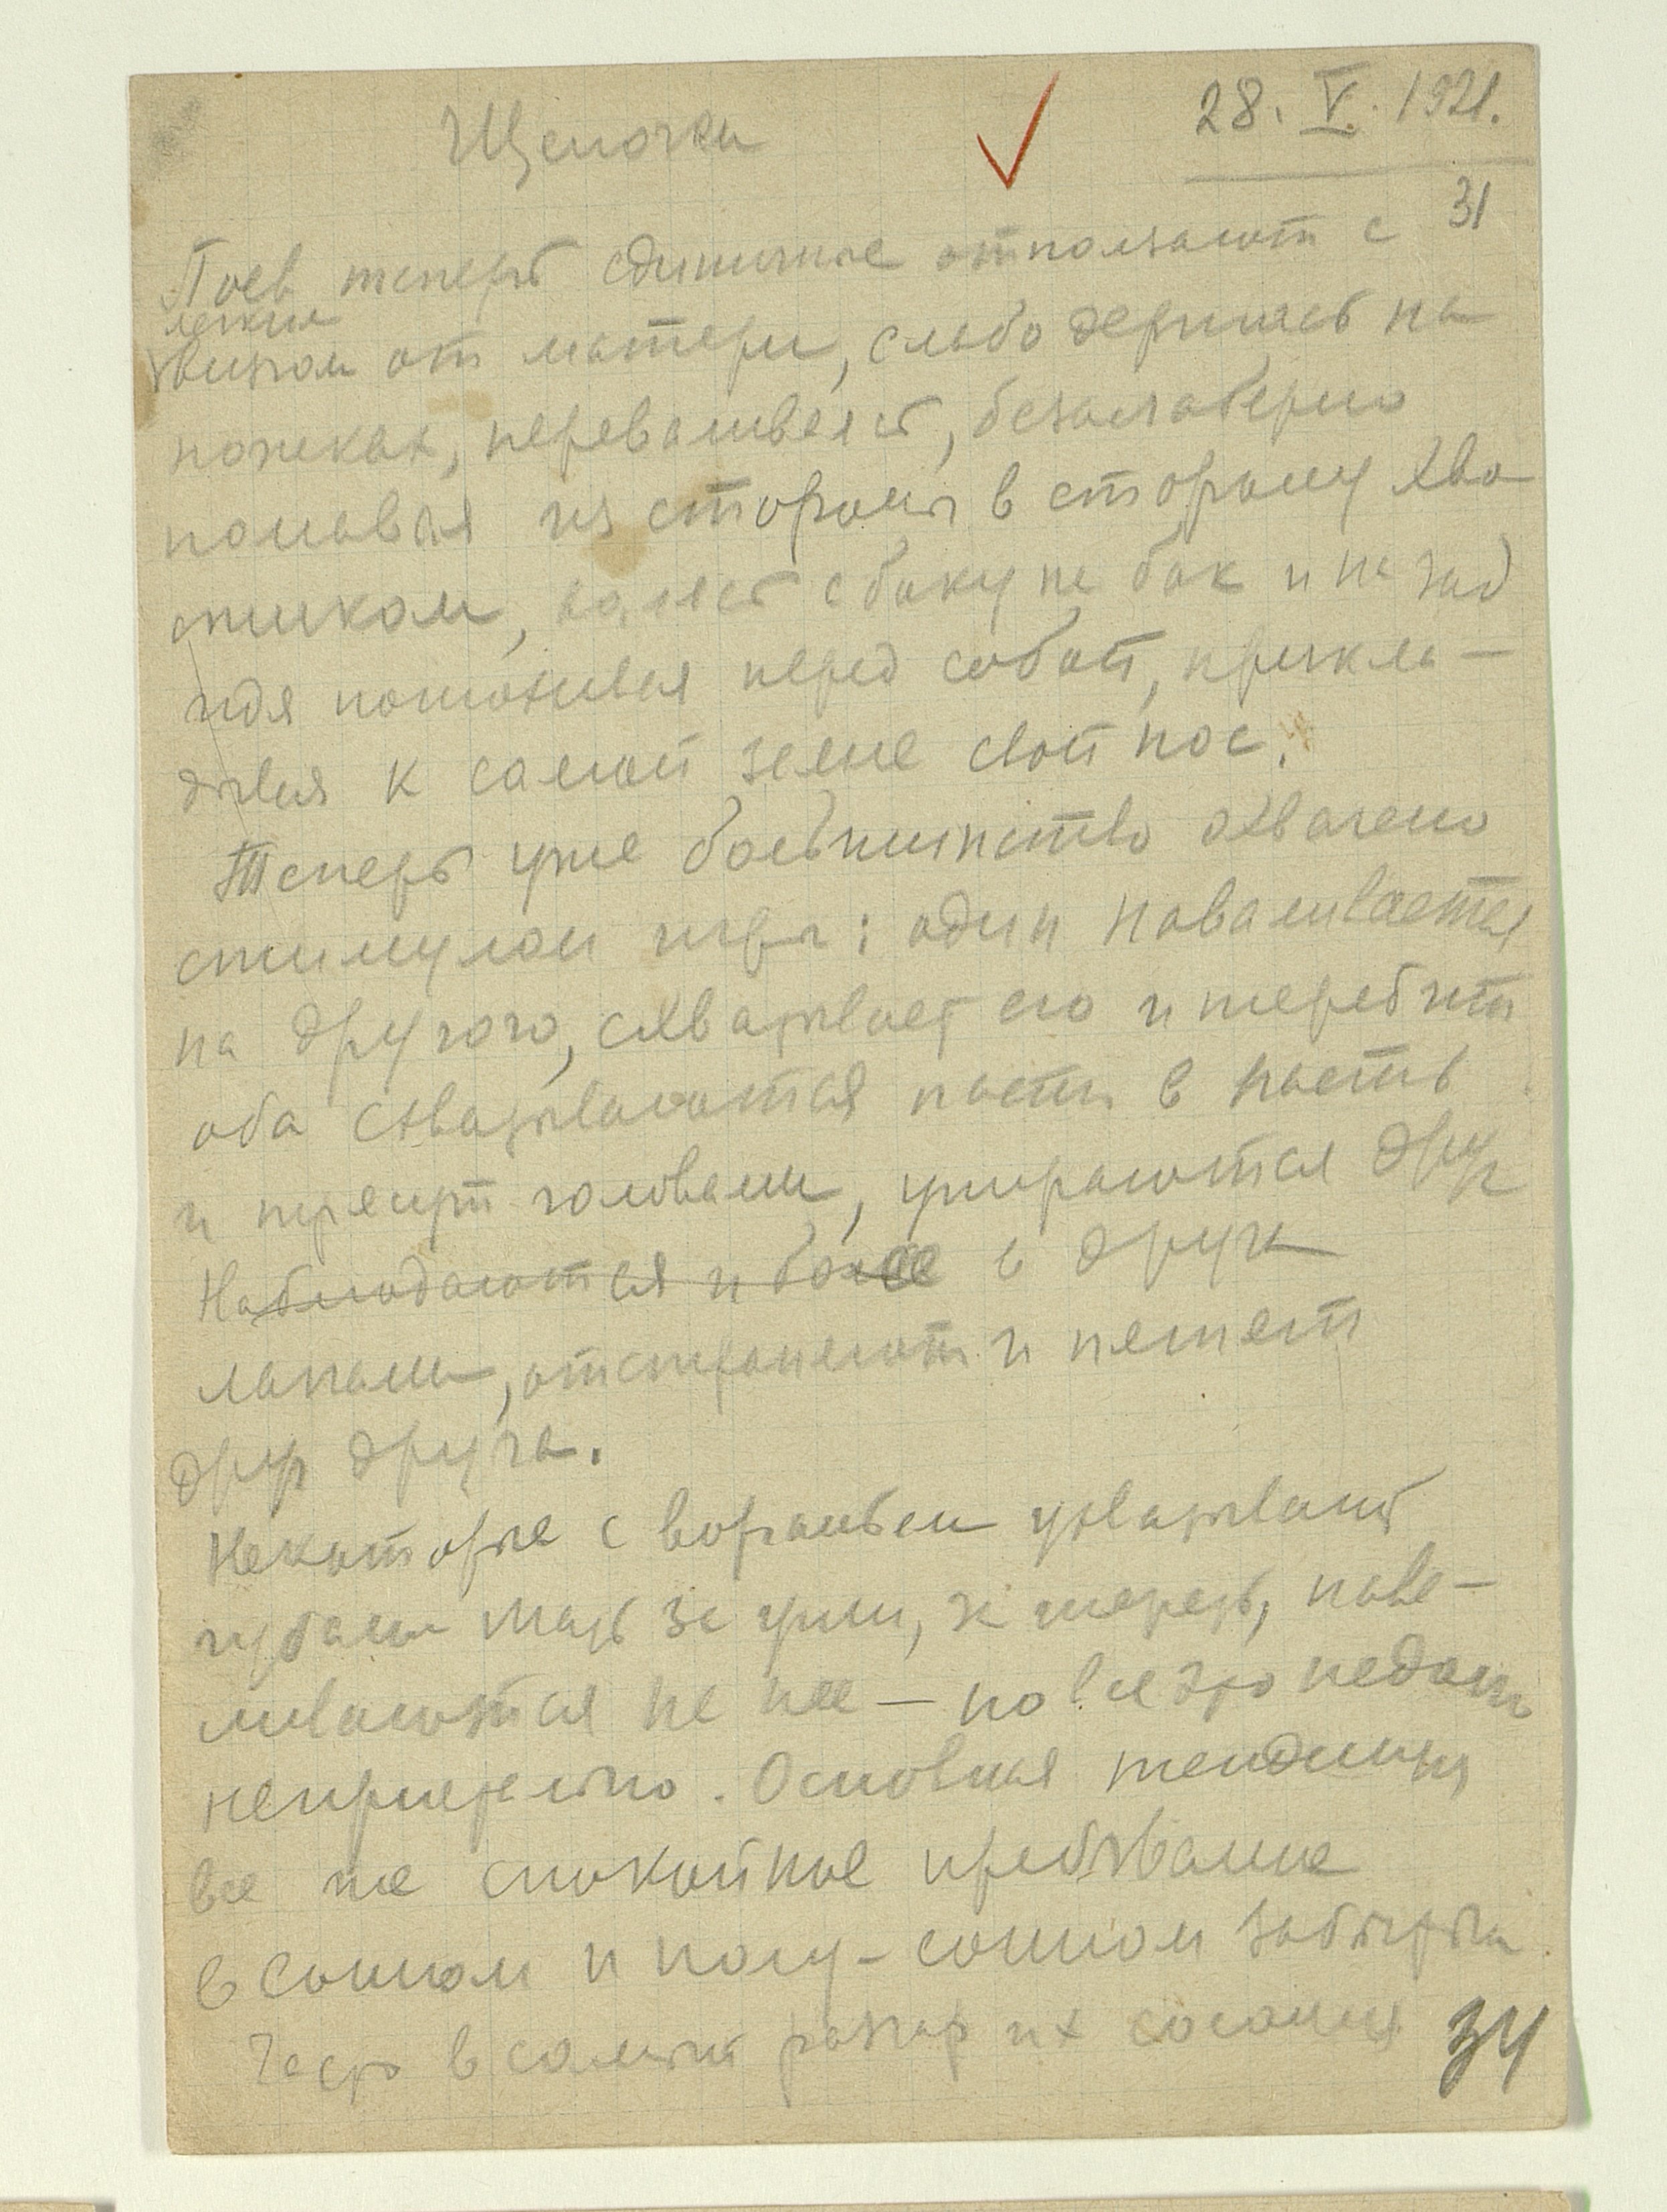 Щеночки
28. V. 1921.
31
Поев, теперь единичные отползают с
легким
визгом от матери, слабо держась на
ножках, переваливаясь, безалаберно
помавая из стороны в сторону хво
стиком, валясь с боку на бок и на зад
идя потыкивая перед собой, прикла-
дывая к самой земле свой нос.
Теперь уже большинство охвачено
стимулом игры: один наваливается
на другого, схватывает его и теребит
оба схватываются пасть в пасть
и трясут головами, упираются друг
Наблюдаются и более в друга
лапами, отстраняют и
друг друга.
Некоторые с ворчаньем ухватывают
зубами мать за уши, за шерсть, нава-
ливаются на нее — но все это недолго
. Основная тенденция
все же спокойное пребывание
в сонном и полу-сонном забытьи
Часто в самый разгар их сосания
34